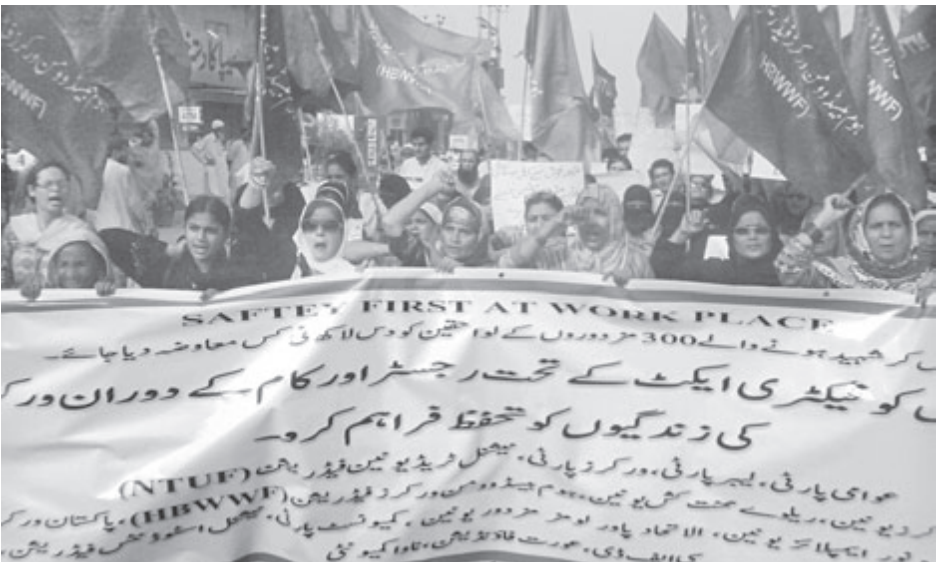 ہوم بیسڈ وومن ورکرز فیڈریشن
(HBWWF)
(HBWWF)
SAFTEY FIRST AT WORK PLACE
کر شہید ہونے والے 300 مزدوروں کے لواحقین کو دس لاکھ فی کس معاوضہ دیا جائے۔
کو فیکٹری ایکٹ کے تحت رجسٹر اور کام کے دوران ورکر
کی زندگیوں کو تحفظ فراہم کرو۔
عوامی پارٹی، لیبر پارٹی، ورکرز پارٹی، نیشنل ٹریڈ یونین فیڈریشن (NTUF)
یونین، ریلوے محنت کش یونین، ہوم بیسڈ وومن ورکرز فیڈریشن (HBWWF)، پاکستان ورکر
ایمپلائز یونین، الاتحاد پاور لومز مزدور یونین، کمیونسٹ پارٹی، نیشنل اسٹوڈنٹس فیڈریشن،
عورت فاؤنڈیشن،